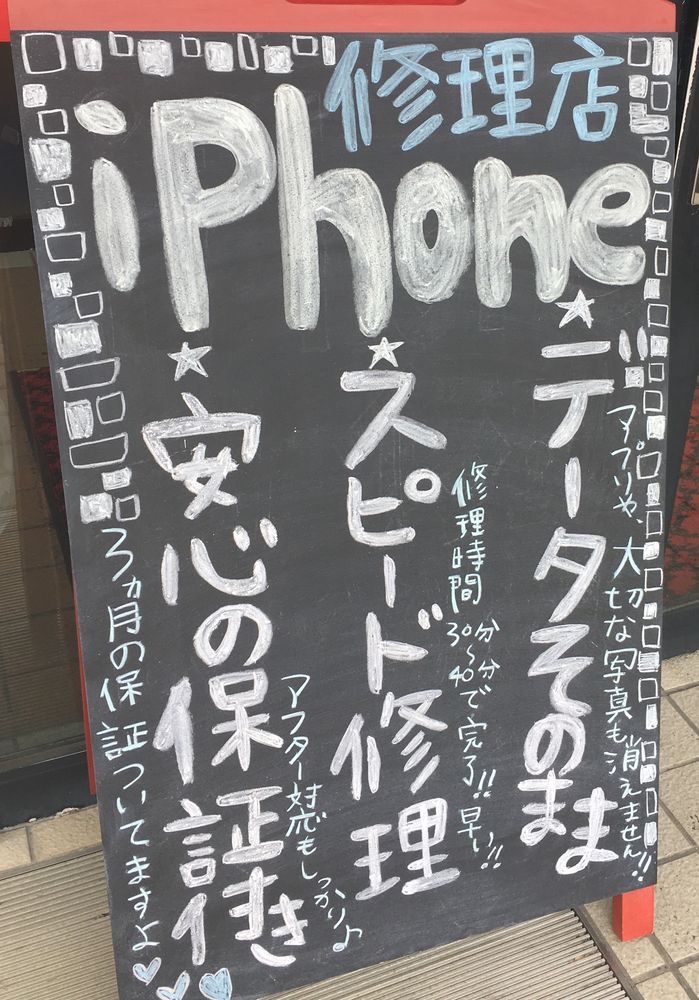 修理店
iPhone
★データそのまま
アプリや、大切な写真も消えません!!
★スピード修理
修理時間30分〜40分で完了!!早い!!
★安心の保証付き
アフター対応もしっかり♪
3ヵ月の保証ついてますよ♡♡♡